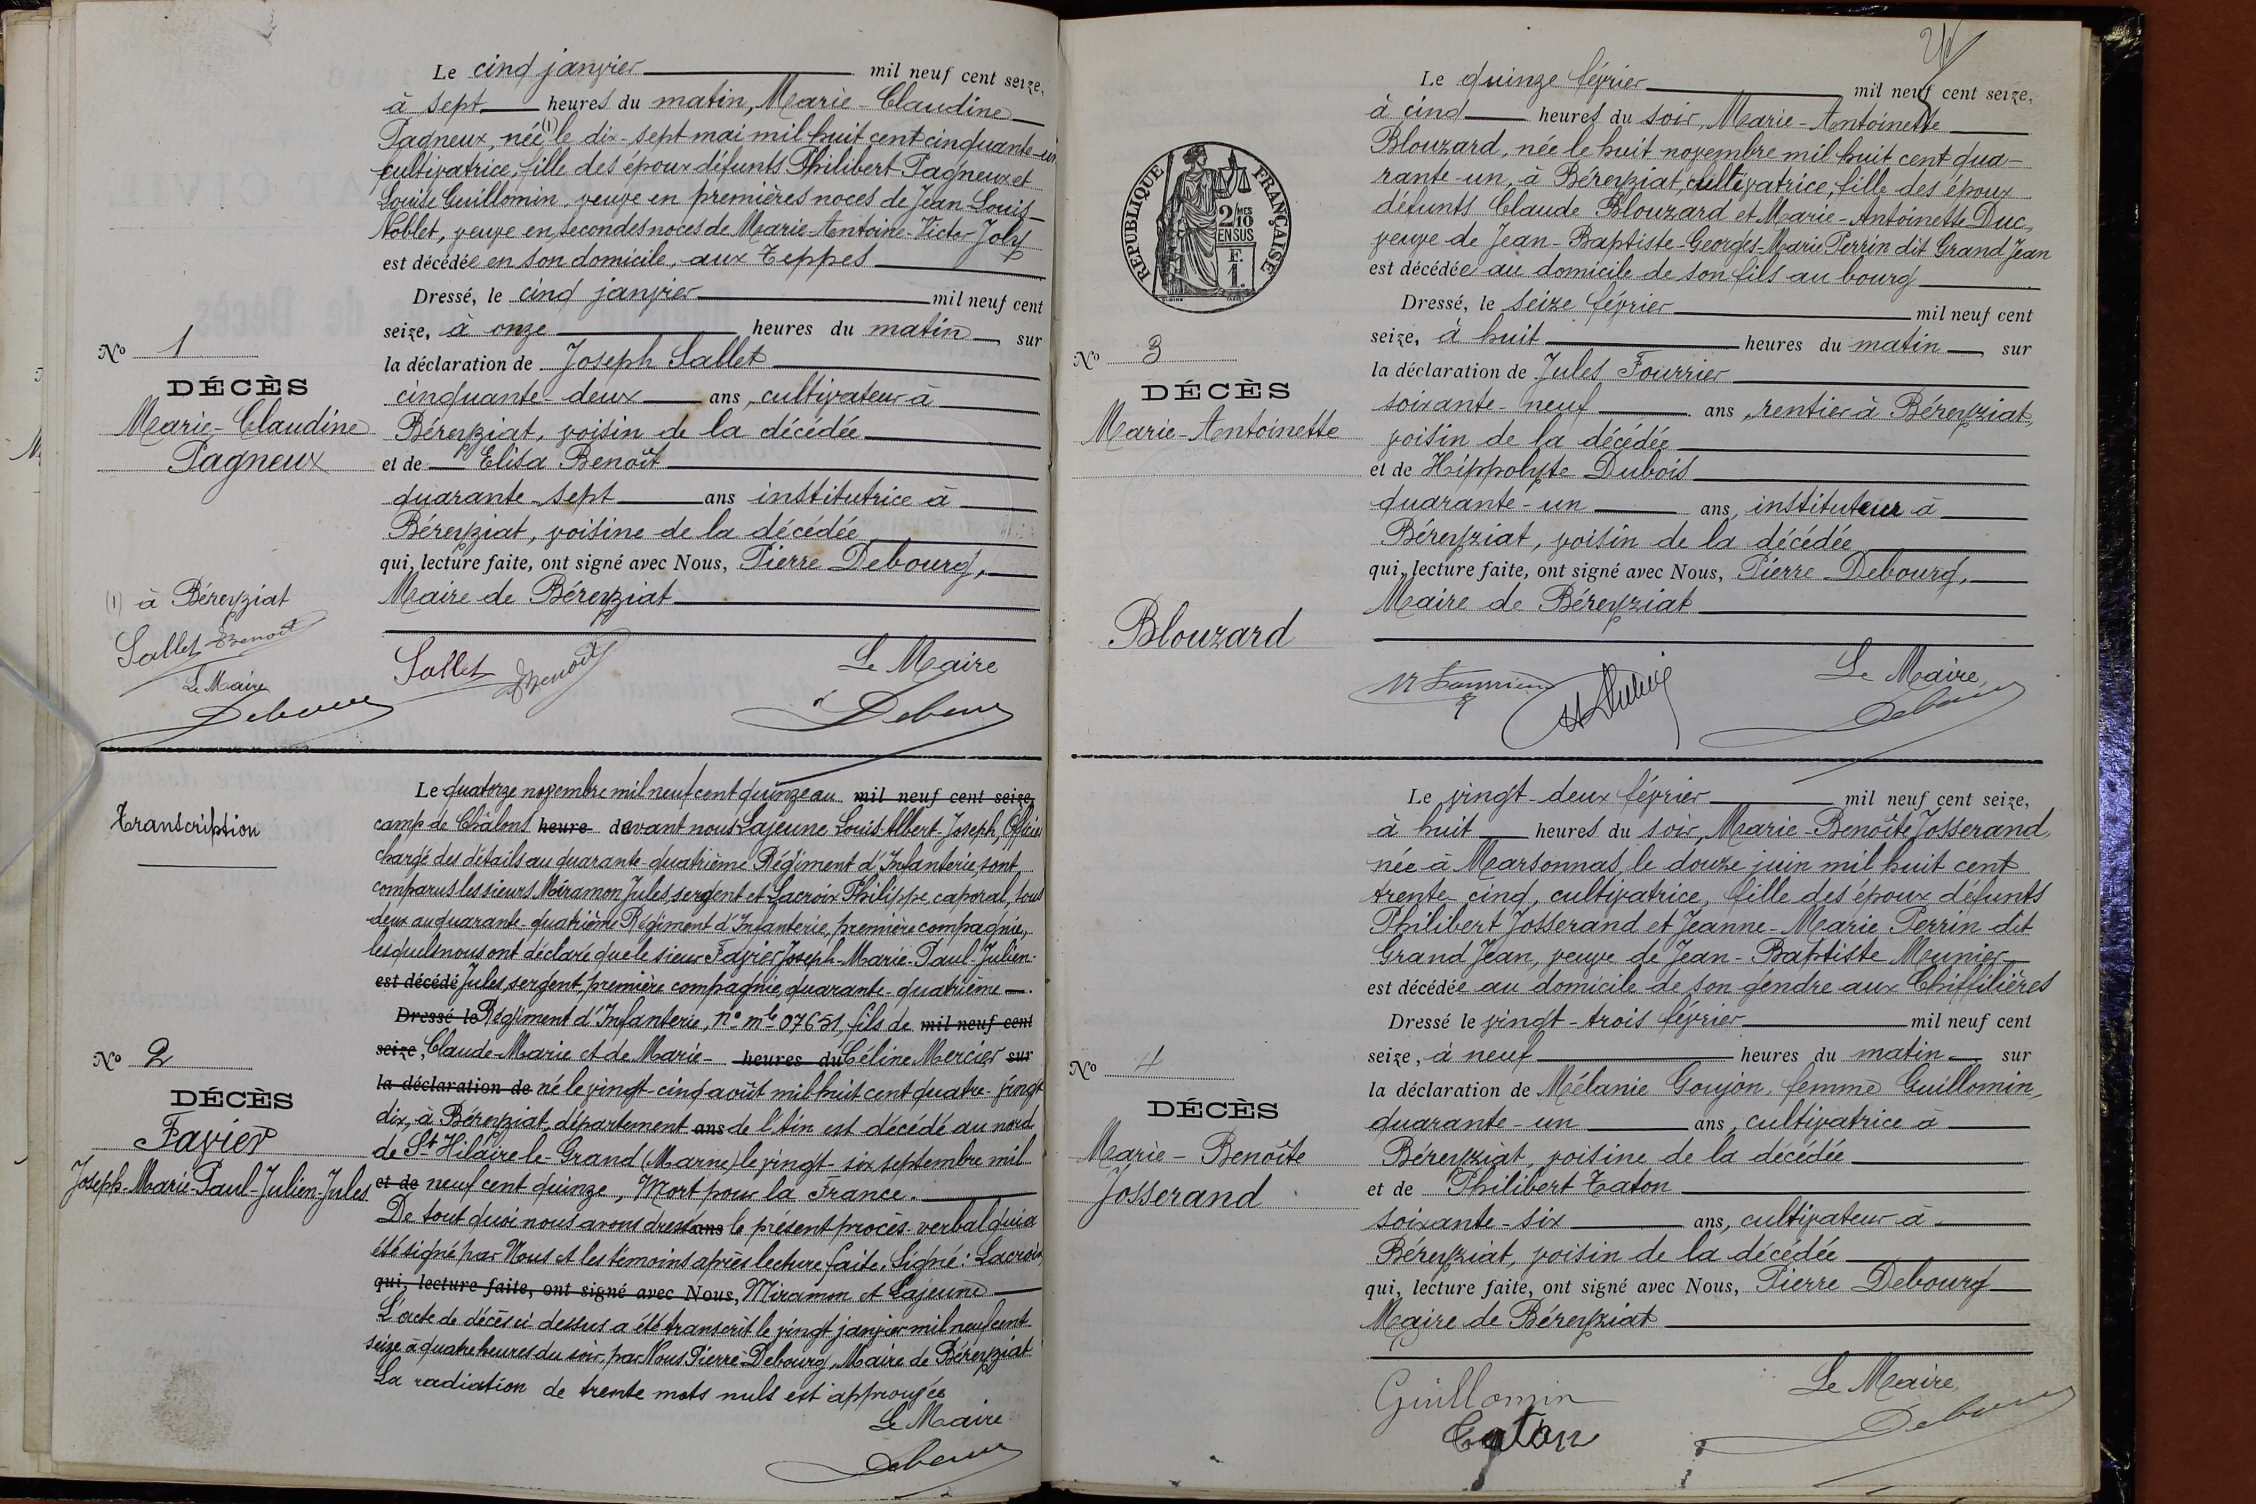 Le cinq janvier mil neuf cent seize,
à sept heures du matin, Marie-Claudine
Pagneux, née (1) le dix-sept mai mil huit cent cinquante-un
cultivatrice, fille des époux défunts Philibert Pagneux et
Louise Guillomin, veuve en premières noces de Jean Louis
Noblet, veuve en secondes noces de Marie-Antoine-Victor Joly
est décédée en son domicile, aux Teppes
Dressé, le cinq janvier mil neuf cent
seize, à onze heures du matin, sur
la déclaration de Joseph Sallet
cinquante-deux ans, cultivateur à
Béreyziat, voisin de la décédée
et de Elisa Benoît
quarante-sept ans institutrice à
Béreyziat, voisine de la décédée
qui, lecture faite, ont signé avec Nous, Pierre Debourg,
Maire de Béreyziat
Sallet EBenoît Le Maire
Debourg
No 1
DÉCÈS
Marie-Claudine
Pagneux
(1) à Béreyziat
Sallet EBenoit
Le Maire
Debourg
Transcription
No 2
DÉCÈS
Favier
Joseph-Marie-Paul-Julien-Jules
Le quatorze novembre mil neuf cent quinze au mil neuf cent seize,
camp de Châlons heure devant nous Lajeune Louis Albert Joseph, Officier
chargé des détails au quarante-quatrième Régiment d'Infanterie, sont
comparus les sieurs Miramon Jules, sergent et Lacroix Philippe caporal, tous
deux au quarante-quatrième Régiment d'Infanterie, première compagnie,
lesquels nous ont déclaré que le sieur Favier Joseph-Marie-Paul-Julien-
est décédé Jules, sergent, première compagnie, quarante-quatrième
Dressé le Régiment d'Infanterie, no mle 07651, fils de mil neuf cent
seize, Claude-Marie et de Marie- heures du Céline Mercier sur
la déclaration de né le vingt-cinq août mil huit cent quatre-vingt
dix, à Béreyziat, département ans de l'Ain est décédé au nord
de St Hilaire-le-Grand (Marne) le vingt-six septembre mil
et de neuf cent quinze, Mort pour la France.
De tout quoi nous avons dressé ans le présent procès-verbal qui a
été signé par Nous et les témoins après lecture faite. Signé: Lacroix,
qui, lecture faite, ont signé avec Nous, Miramon et Lajeune
L'acte de décès ci dessus a été transcrit le vingt janvier mil neuf cent
seize à quatre heures du soir, par Nous Pierre Debourg, Maire de Béreyziat
La radiation de trente mots nuls est approuvée
Le Maire
Debourg
REPUBLIQUE FRANÇAISE
2/MES
10
EN SUS
F.
1.
Le quinze février mil neuf cent seize,
à cinq heures du soir, Marie-Antoinette
Blouzard, née le huit novembre mil huit cent qua-
rante-un, à Béreyziat, cultivatrice, fille des époux
défunts Claude Blouzard et Marie-Antoinette Duc,
veuve de Jean-Baptiste-Georges-Marie Perrin dit Grand Jean
est décédée au domicile de son fils au bourg
Dressé, le seize février mil neuf cent
seize, à huit heures du matin, sur
la déclaration de Jules Fourrier
soixante-neuf ans, rentier à Béreyziat,
voisin de la décédée
et de Hippolyte Dubois
quarante-un ans, instituteur à
Béreyziat, voisin de la décédée
qui, lecture faite, ont signé avec Nous, Pierre Debourg,
Maire de Béreyziat
Le Maire,
Debourg
No 3
DÉCÈS
Marie-Antoinette
Blouzard
Le vingt-deux février mil neuf cent seize,
à huit heures du soir, Marie-Benoîte Josserand,
née à Marsonnas, le douze juin mil huit cent
trente-cinq, cultivatrice, fille des époux défunts
Philibert Josserand et Jeanne-Marie Perrin dit
Grand Jean, veuve de Jean-Baptiste Meunier,
est décédée au domicile de son gendre aux Chiffilières
Dressé le vingt-trois février mil neuf cent
seize, à neuf heures du matin, sur
la déclaration de Mélanie Goujon, femme Guillomin,
quarante-un ans, cultivatrice à
Béreyziat, voisine de la décédée
et de Philibert Taton
soixante-six ans, cultivateur à
Béreyziat, voisin de la décédée
qui, lecture faite, ont signé avec Nous, Pierre Debourg
Maire de Béreyziat
Guillomin Le Maire,
Taton Debourg
No 4
DÉCÈS
Marie-Benoîte
Josserand